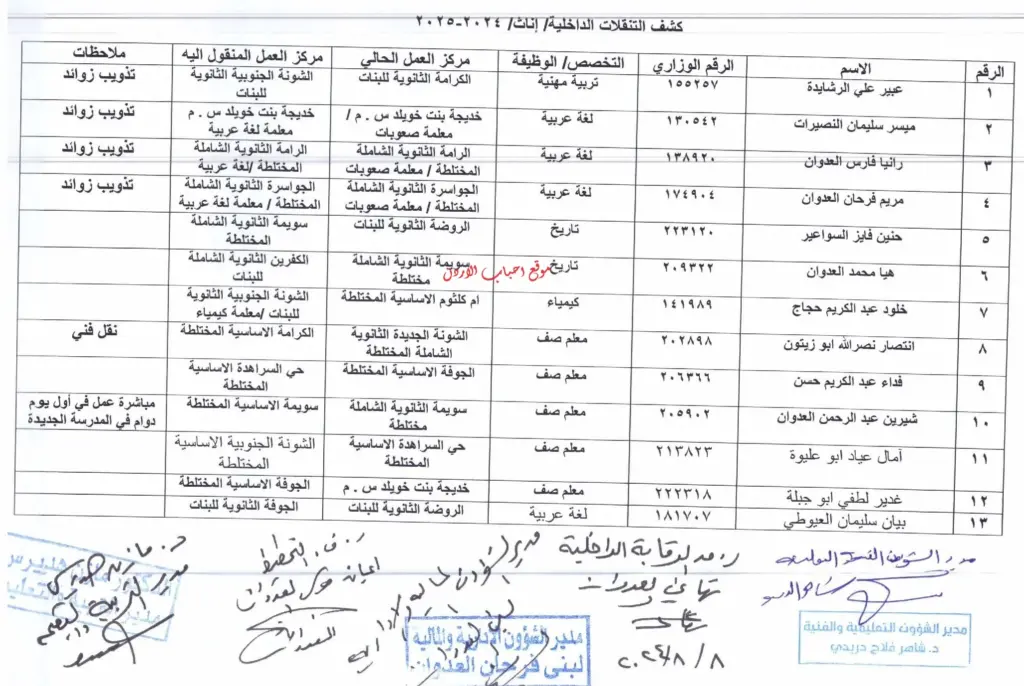 كشف التنقلات الداخلية/ إناث/ ٢٠٢٤-٢٠٢٥
الرقم الاسم الرقم الوزاري التخصص/ الوظيفة مركز العمل الحالي مركز العمل المنقول اليه ملاحظات
١ عبير علي الرشايدة ١٥٥٢٥٧ تربية مهنية الكرامة الثانوية للبنات الشونة الجنوبية الثانوية تذويب زوائد
للبنات
٢ ميسر سليمان النصيرات ١٣٠٥٤٢ لغة عربية خديجة بنت خويلد س . م / خديجة بنت خويلد س . م تذويب زوائد
معلمة صعوبات معلمة لغة عربية
٣ رانيا فارس العدوان ١٣٨٩٢٠ لغة عربية الرامة الثانوية الشاملة الرامة الثانوية الشاملة تذويب زوائد
المختلطة / معلمة صعوبات المختلطة /لغة عربية
٤ مريم فرحان العدوان ١٧٤٩٠٤ لغة عربية الجواسرة الثانوية الشاملة الجواسرة الثانوية الشاملة تذويب زوائد
المختلطة / معلمة صعوبات المختلطة / معلمة لغة عربية
٥ حنين فايز السواعير ٢٢٣١٢٠ تاريخ الروضة الثانوية للبنات سويمة الثانوية الشاملة
المختلطة
٦ هيا محمد العدوان ٢٠٩٣٢٢ تاريخ سويمة الثانوية الشاملة الكفرين الثانوية الشاملة
مختلطة للبنات
موقع احباب الاردن
٧ خلود عبد الكريم حجاج ١٤١٩٨٩ كيمياء ام كلثوم الاساسية المختلطة الشونة الجنوبية الثانوية
للبنات /معلمة كيمياء
٨ انتصار نصرالله ابو زيتون ٢٠٢٨٩٨ معلم صف الشونة الجديدة الثانوية الكرامة الاساسية المختلطة نقل فني
الشاملة المختلطة
٩ فداء عبد الكريم حسن ٢٠٦٣٦٦ معلم صف الجوفة الاساسية المختلطة حي السراهدة الاساسية
المختلطة
١٠ شيرين عبد الرحمن العدوان ٢٠٥٩٠٢ معلم صف سويمة الثانوية الشاملة سويمة الاساسية المختلطة مباشرة عمل في أول يوم
مختلطة دوام في المدرسة الجديدة
١١ آمال عياد ابو عليوة ٢١٣٨٢٣ معلم صف حي السراهدة الاساسية الشونة الجنوبية الاساسية
المختلطة المختلطة
١٢ غدير لطفي ابو جبلة ٢٢٢٣١٨ معلم صف خديجة بنت خويلد س . م الجوفة الاساسية المختلطة
١٣ بيان سليمان العيوطي ١٨١٧٠٧ لغة عربية الروضة الثانوية للبنات الجوفة الثانوية للبنات
ر. ق. التخطيط
ر. الرقابة الداخلية
تهاني العدوان
٢٠٢٤/٨/٨
مدير الشؤون التعليمية والفنية
د. شاهر فلاح دريدي
مدير الشؤون الإدارية والمالية
لبنى فرحان العدوان